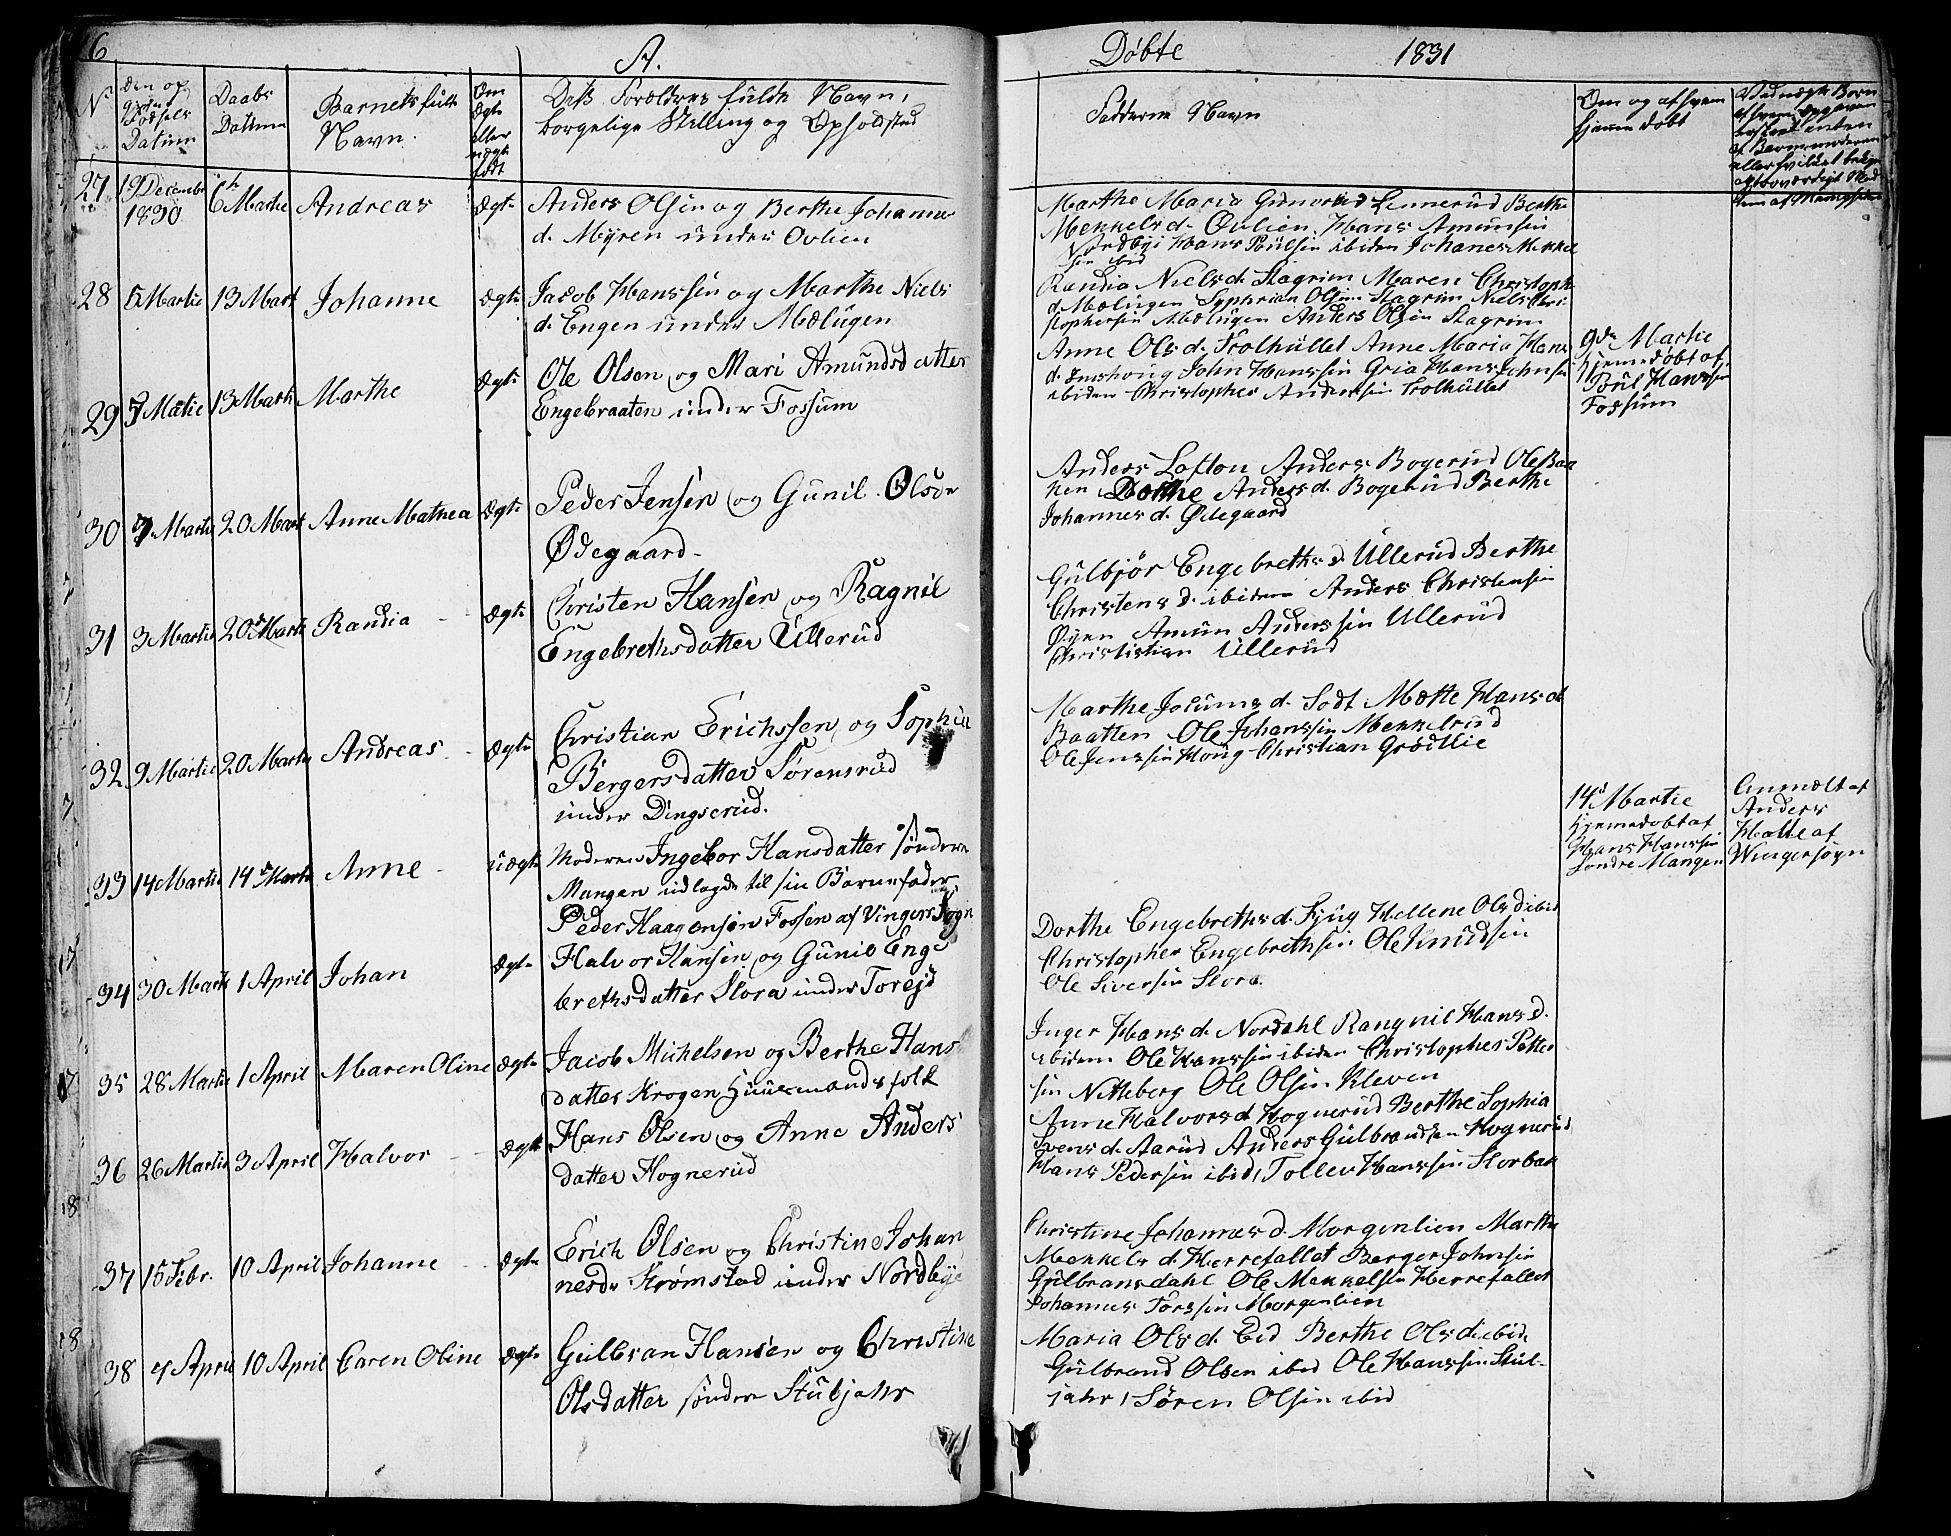 6
A.
Døbte 1831
No
Den og
Fødsels
Datum
Daabs
Datum
Barnets fulde
Navn.
Om
ægte
eller
uægte
født
Forældres fulde Navn,
borgelige Stilling og Opholdsted
Faddernes Navn
Om og af hvem
hjemmedøbt
27 19 December
1830 6te Martie Andreas Ægte Anders Olsen og Berthe Johannes
d. Myren under Ovlien
Marthe Maria Lennerud Berthe
Mekkels d. Ovlien Hans Amunsen
Nordbye Hans Poulsen ibidem Johanes Mekkel
sen ibid
28 5 Martie 13 Mart Johanne Ægte Jacob Hanssen og Marthe Niels
d. Engen under Mælügen
Randia Niels d. Slagrim Maren Christoph
d. Mælügen Syphrian Olsen Slagrim Niels Chri
stophersen Mælügen Anders Olsen Slagrim
29 7 Martie 13 Marti Marthe Ægte Ole Olsen og Mari Amundsdatter
Engebraaten under Fossum
Anne Ols d. Trolhüllet Anne Maria Hans
d. John Hanssen Hans Johnsen
ibidem Christopher Anderssen Trolhüllet
9de Martie
hjemedøbt af
Poul Hanssen
Fossum
30 7 Martie 20 Mart Anne Mathea Ægte Peder Jensen og Gunil Olsdr
Ødegaard
Anders Lofton Anders Bogerud Ole Baa
ken Dorthe Anders d. Bogerud Berthe
Johannes d. Ødegaard
31 3 Martie 20de Marti Randia Ægte Christen Hansen og Ragnil
Engebrethsdatter Ullerud
Gulbjør Engebreths d. Ullerud Berthe
Christens d. ibidem Anders Christensen
Øyen Amun Anderssen Ullerud
Christistian Ullerud
32 9 Martie 20 Marti Andreas Ægte Christian Erichssen og Sophia
Bergersdatter Sørensrud
under Dingsrud.
Marthe Jocums d. Sodt Mætte Hans d
Baatten Ole Johanssen Mekkelrud
Ole Jenssen Houg Christian Grødllie
33 14 Martie 14de Marti Anne uægte Moderen Ingebor Hansdatter søndere
Mangen udlagde til sin Barnefader
Peder Haagensen Fossen af Vingers Sogn
14de Martie
hjemedøbt af
Hans Hanssen
Søndre Mangen
Anmælt af
Anders
af
Wingersogn
34 30 Marti 1 April Johan Ægte Halvor Hansen og Gunil Enge
brethsdatter Slora under Torejd
Dorthe Engebreths d. Fjüg Hellene Ols d ibid
Christopher Engebrethsen Ole Knudsen
Ole Siversen Slora.
35 28 Martie 1 April Maren Oline Ægte Jacob Michelsen og Berthe Hans
datter Krogen Huusmandsfolk
Inger Hans d. Nordahl Rangnil Hans d.
ibidem Ole Hanssen ibidem Christopher Petter
sen Nitteberg Ole Olsen Kleven
36 26 Martie 3 April Halvor Ægte Hans Olsen og Anne Anders
datter Hognerud
Anne Halvors d Hognerud Berthe Sophia
Svens d. Aarud Anders Gulbrandsen Hognerud
Hans Pedersen ibid, Tollev Hanssen Slorbak
37 15 Febr. 10 April Johanne Ægte Erich Olsen og Christine Johan
nesdr Strømstad under Nordbye
Christine Johannes d. Morgenlien Marthe
Mekkels d. Herrefallet Berger Johnsen
Gulbransdahl Ole Mekkelsen Herrefallet
Johannes Torssen Morgenlien
38 4 April 10 April Caren Oline Ægte Gulbran Hansen og Christine
Olsdatter søndre Stubjahr
Maria Ols d. Eid Berthe Ols d ibid
Gulbrand Olsen ibid Ole Hanssen Stub-
jahr, Søren Olsen ibid